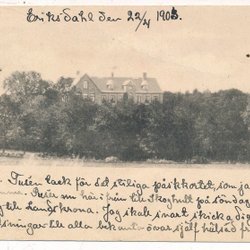 Eriksdahl den 22/4 1903.
Tusen tack för det stiliga påskkortet, som ja
Reser nu härifrån till Skoghult på söndag
till Landskrona. Jag skall snart skicka dig
till alla bekanta, även själf hälsad f